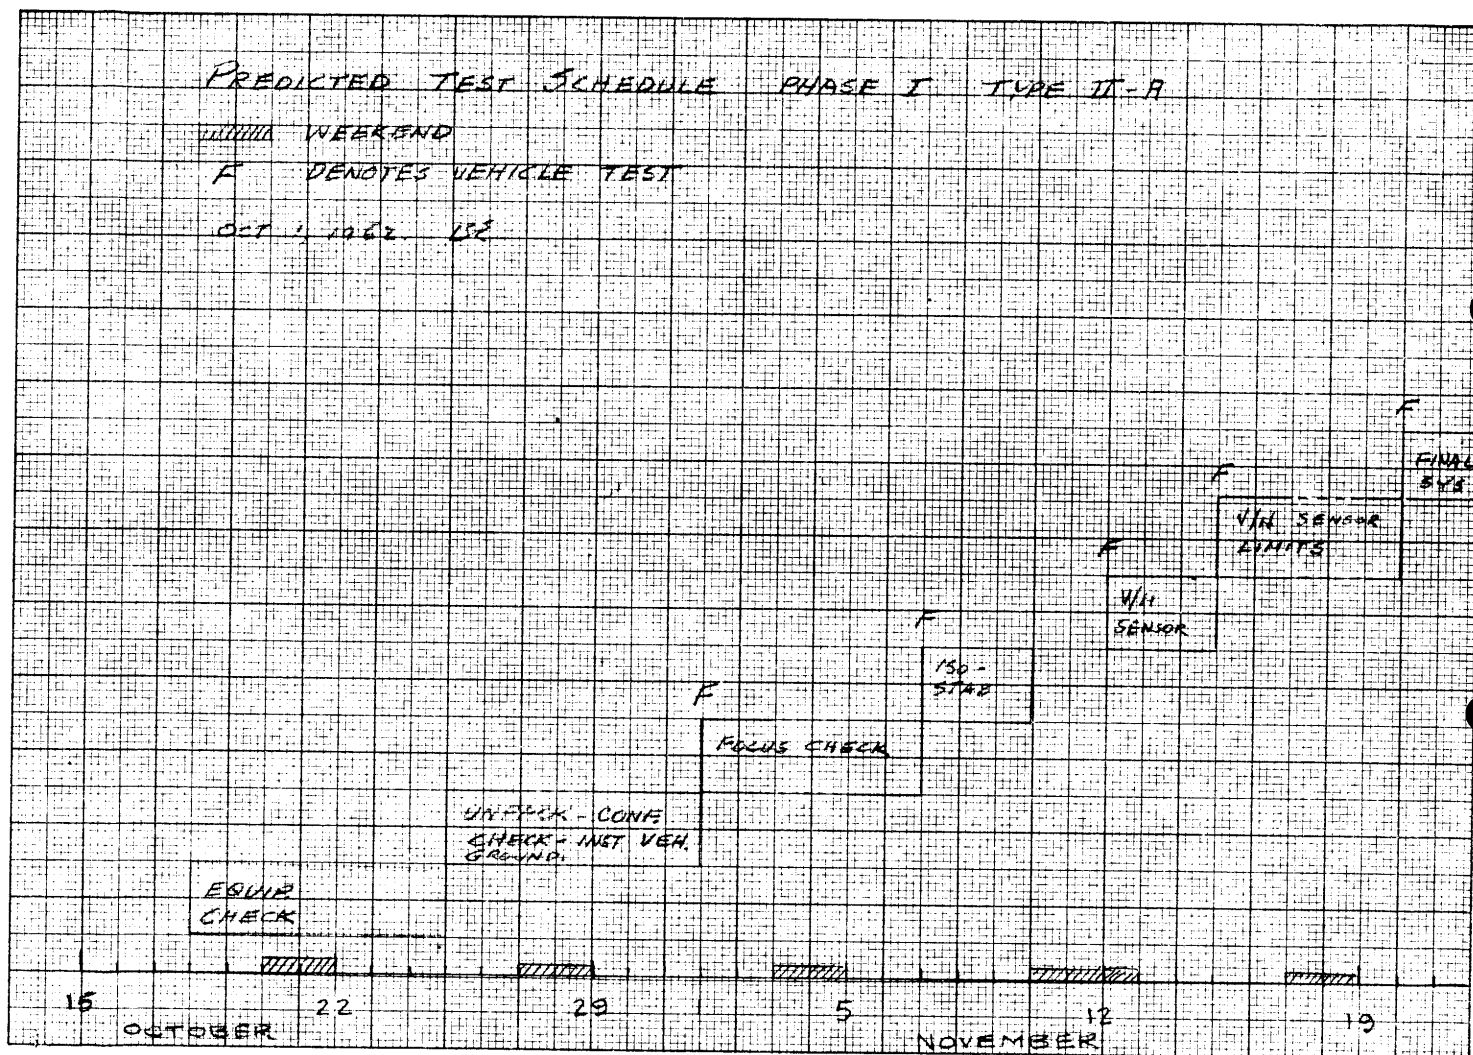 PREDICTED TEST SCHEDULE PHASE I TYPE II-A
WEEKEND
F DENOTES VEHICLE TEST
OCT 1, 1962
F
FINAL
SYS.
F
V/H SENSOR
LIMITS
F
V/H
SENSOR
F
ISO-
STAB
F
FOCUS CHECK
UNPACK - CONF.
CHECK - INST VEH.
GROUND.
EQUIP.
CHECK
15 22 29 5 12 19
OCTOBER NOVEMBER